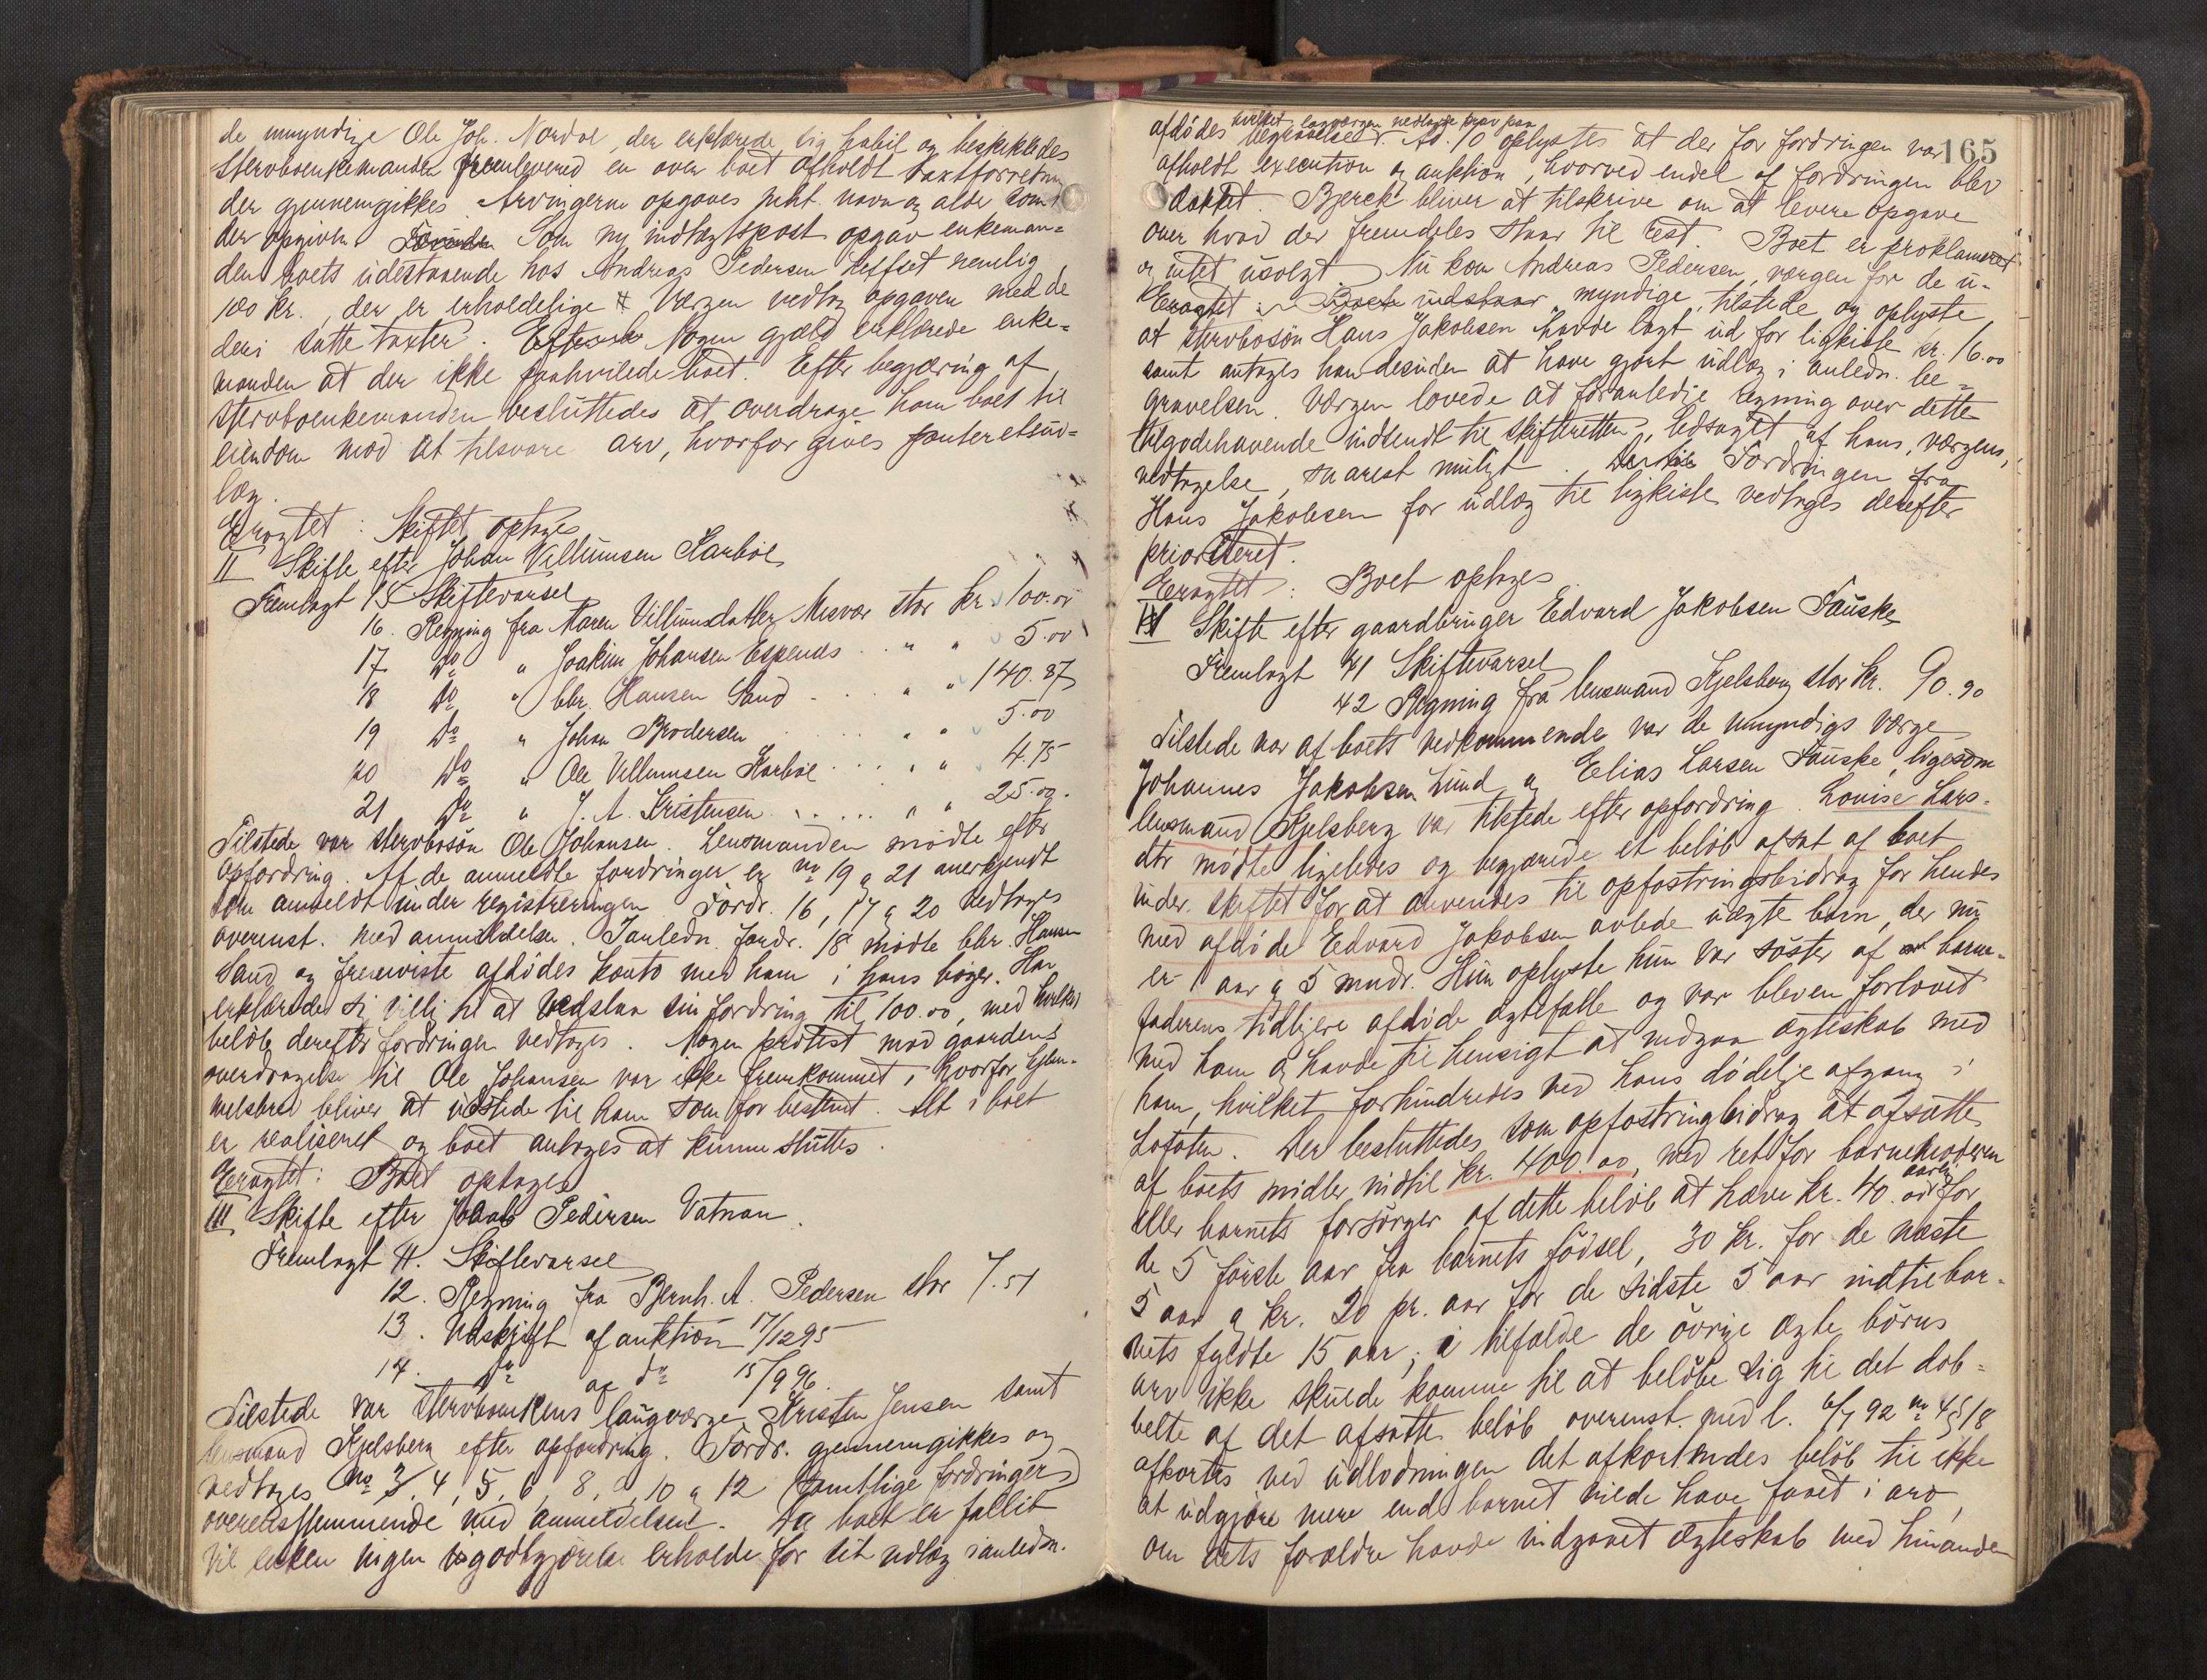 de umyndige Ole Joh. Nordal, der erklærede sig habil og beskikkedes
Stervboenkemanden fremleverede en over boet afholdt taxtforretning
der gjennemgikkes. Arvingerne opgaves mht. navn og alder som
der opgiven. Som ny indtægtspost opgav enkeman=
den boets udestaaende hos Andreas Pedersen Leffset nemlig
100 kr., der er erholdelige. Værgen vedtog opgaven med de
deri satte taxter. Nogen gjæld erklærede enke=
manden at der ikke paahvilede boet. Efter begjæring af
stervboenkemanden besluttedes at overdrage ham boet til
eiendom mod at tilsvare arv, hvorfor gives panteretsud=
læg.
Eragtet: Skiftet optages
II Skifte efter Johan Villumsen Karbøl
Fremlagt 15 Skiftevarsel
16. Regning fra Maren Villumsdatter Misvær stor kr. 100.00
17 Do " Joakim Johansen Espenes . . " " 5.00
18 Do " Chr. Hansen Sand . . . " " 140.87
19 Do " Johan Brodersen . . . " " 5.00
20 Do " Ole Villumsen Karbøl . . . " " 4.75
21 Do " J. A. Kristensen . . . . . " " 25.00.
Tilstede var stervbosøn Ole Johansen. Lensmanden mødte efter
opfordring. Af de anmeldte fordringer er No 19 & 21 anerkjendt
som anmeldt under registreringen. Fordr. 16, 17 & 20 vedtages
overenst. med anmeldelsen. I anledn. fordr. 18 mødte Chr. Hansen
Sand og fremviste afdødes konto med ham i hans bøger. Han
erklærede sig villig til at nedslaa sin fordring til 100.00, med hvilket
beløb derefter fordringen vedtages. Nogen protest mod gaardens
overdragelse til Ole Johansen var ikke fremkommet, hvorfor hjem-
melsbrev bliver at udstede til ham som før bestemt. Alt i boet
er realiseret og boet antages at kunne sluttes.
Eragtet: Boet optages
III Skifte efter Jakob Pedersen Vatnan.
Fremlagt 11. Skiftevarsel
12. Regning fra Bernh. A. Pedersen stor 7.51
13. Udskrift af auktion 17/12 95
14. Do af do 15/9 96.
Tilstede var stervboenkens laugværge Kristen Jensen samt
lensmand Kjelsberg efter opfordring. Fordr. gjennemgikkes og
vedtages No 3, 4, 5, 6, 8, 9, 10 & 12 (samtlige fordringer)
overensstemmende med anmeldelsen. Da boet er fallit
vil enken ingen godtgjørelse erholde for sit udlæg i anledn.
165
hvilket laugværgen nedlagde krav paa
afdødes begravelse. Ad. 10 oplystes at der for fordringen var
afholdt execution og auktion, hvorved endel af fordringen blev
dækket. Bjerck bliver at tilskrive om at levere opgave
over hvad der fremdeles staar til rest. Boet er proklameret
og intet usolgt. Nu kom Andreas Pedersen, værgen for de u-
Eragtet: Boet indestaar myndige, tilstede og oplyste
at stervbosøn Hans Jakobsen havde lagt ud for ligkiste kr. 16.00
samt antages han desuden at have gjort udlæg i anledn. be=
gravelsen. Værgen lovede at foranledige regning over dette
tilgodehavende indsendt til skifteretten, ledsaget af hans, værgens,
vedtagelse, snarest muligt. Fordringen fra
Hans Jakobsen for udlæg til ligkiste vedtages derefter
prioriteret.
Eragtet: Boet optages
IV Skifte efter gaardbruger Edvard Jakobsen Fauske
Fremlagt 41 Skiftevarsel
42 Regning fra lensmand Kjelsberg stor kr. 90.90
Tilstede var af boets vedkommende var de umyndiges værge
Johannes Jakobsen Lund og Elias Larsen Fauske, ligesom
lensmand Kjelsberg var tilstede efter opfordring. Louise Lars-
dtr mødte ligeledes og begjærede et beløb afsat af boet
under skiftet for at anvendes til opfostringsbidrag for hendes
med afdøde Edvard Jakobsen avlede uægte barn, der nu
er 1 aar & 5 mndr. Hun oplyste hun var søster af barne-
faderens tidligere afdøde ægtefælle og var bleven forlovet
med ham og havde til hensigt at indgaa ægteskab med
ham, hvilket forhindredes ved hans dødelige afgang i
Lofoten. Der besluttedes som opfostringsbidrag at afsætte
af boets midler indtil kr. 400.00, med ret for barnemoderen
eller barnets forsørger af dette beløb at hæve kr. 40.00 aarlig for
de 5 første aar fra barnets fødsel, 30 kr. for de næste
5 aar & kr. 20 pr. aar for de sidste 5 aar indtil bar-
nets fyldte 15 aar; i tilfælde de øvrige ægte børns
arv ikke skulde komme til at beløbe sig til det dob=
belte af det afsatte beløb overenst. med l. 6/7 92 No 4 § 18
afkortes ved udlodningen det afkortendes beløb til ikke
at udgjøre mere end barnet vilde have faaet i arv,
om dets forældre havde indgaaet ægteskab med hinanden